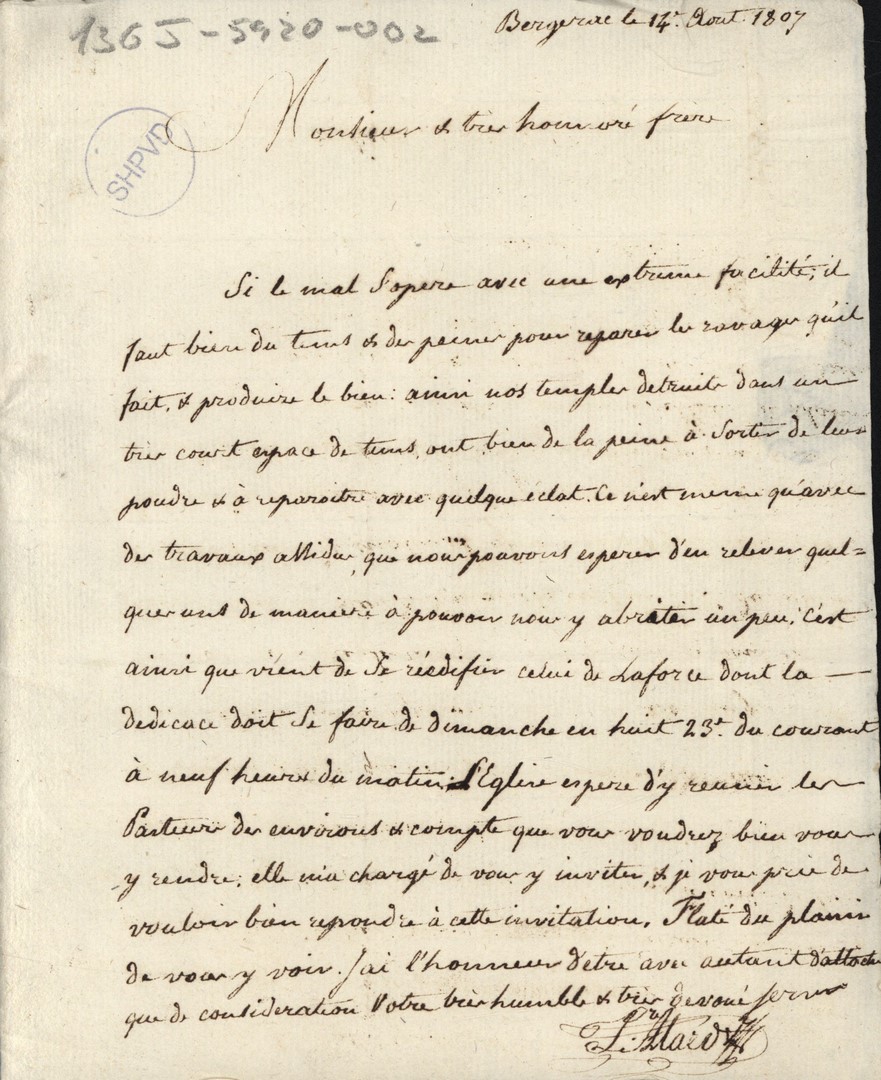 136 J - 5920 - 002
Bergerac le 14e. Aout 1807
SHPVD
Monsieur & tres honnoré frere
Si le mal s'opere avec une extreme facilité; il
faut bien du tems & des peines pour reparer les ravages qu'il
fait, & produire le bien: ainsi nos temples detruits dans un
tres court espace de tems, ont bien de la peine à sortir de leur
poudre & à reparoitre avec quelque éclat. Ce n'est meme qu'avec
des travaux assidus, que nous pouvons esperer d'en relever quel=
ques uns de maniere à pouvoir nous y abriter un peu. C'est
ainsi que vient de se réedifier celui de Laforce dont la
dedicace doit se faire de dimanche en huit 23e. du courant
à neuf heures du matin. L'Eglise espere d'y reunir les
Pasteurs des environs & compte que vous voudrez bien vous
y rendre; elle m'a chargé de vous y inviter, & je vous prie de
vouloir bien repondre à cette invitation. Flaté du plaisir
de vous y voir. J'ai l'honneur d'etre avec autant
que de consideration Votre tres humble & tres devoué serv